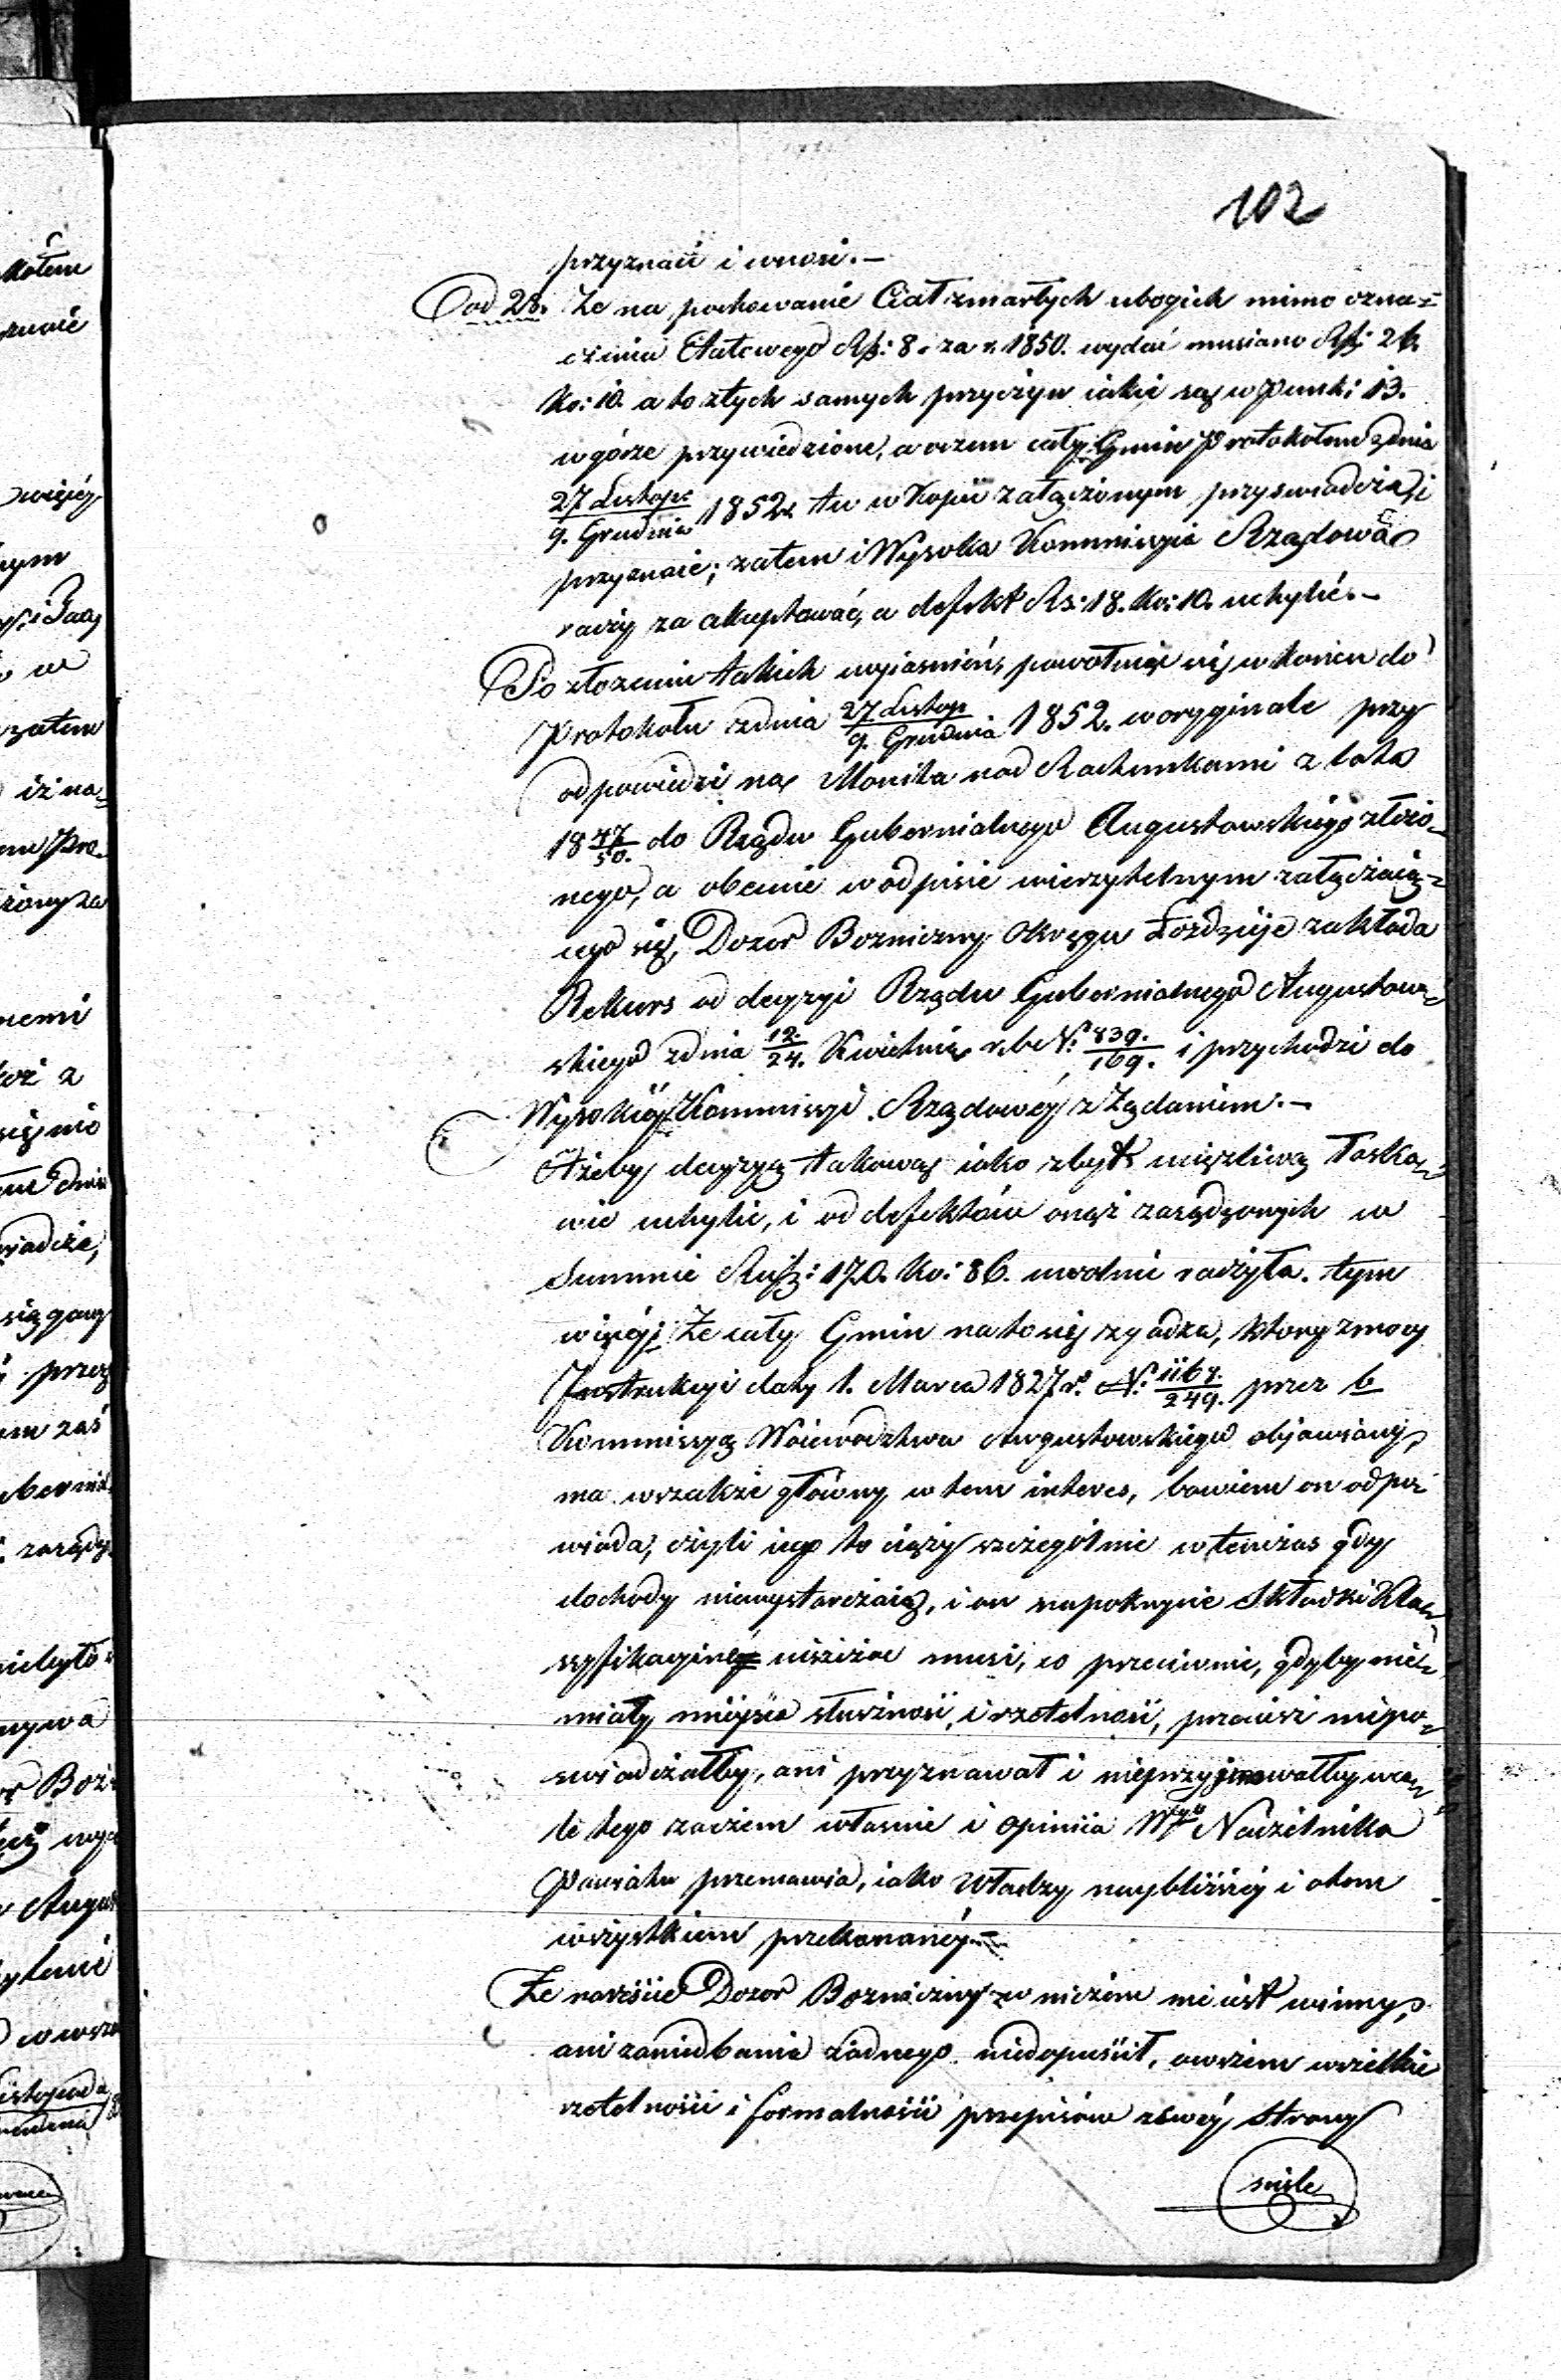 102
przyznać i wnosi. —
od 28. Że na pochowanie Ciał zmarłych ubogich mimo ozna=
czenia Etatowego Rs: 8. za r. 1850. wydać musiano Rs: 26.
Ko: 10. a to ztych samych przyczyn iakie są w Punk: 13.
w górze przywiedzione, a oczem cały Gmin Protokołem zdnia
27 Listop: / 9. Grudnia 1852 r. tu w Kopii załączonym przyswiadcza, i
przyznaie; zatem i Wysoka Kommissyia Rządowa
raczy za akceptować, a defekt Rs: 18. Ko: 10. uchylić. —
Po złożeniu takich wyiasnień, powołuiąc się w końcu do
Protokołu zdnia 27 Listop / 9. Grudnia 1852. w oryginale przy
odpowiedzi na Monita nad Rachunkami z lata
18 47/50. do Rządu Gubernialnego Augustowskiego złożo-
nego, a obecnie w odpisie wierzytelnym załączaią-
cego się, Dozór Bozniczny Okręgu Łozdzieje zakłada
Rekurs od decyzyi Rządu Gubernialnego Augustow-
skiego zdnia 12./24. Kwietnia r. b. N: 839./169. i przychodzi do
Wysokiéy Kommissyi Rządowéy z Żądaniem. —
Ażeby decyzyą takową iako zbyt uciążliwą łaska-
wie uchylić, i od defektów onąż zarządzonych w
Summie Rubs: 170. Ko: 86. uwolnić raczyła. tym
więcéj: Że cały Gmin na to się zgadza, ktory zmocy
Instrukcyi daty 1. Marca 1827 r. N: 1168./249. przez b
Kommissyą Woiewodztwa Augustowskiego objawiony,
ma wszakże główny w tem interes, bowiem on odpo-
wiada, czyli iego to ciąży szczególnie wtenczas gdy
dochody niewystarczaią, i on napokrycie Składki Klas-
syfikacyinéy uiszczac musi, co przeciwnie, gdyby nie-
miały mieysca słuszność, i rzetelność, przecież niepo-
swiadczałby, ani przyznawał i nieprzyjmowałby wca-
le tego zaczem własnie i opiniia Wgo Naczelnika
Powiatu przemawia, iako Władzy naybliższéy i otem
wszystkiem przekonanéy. —
Że nareszcie Dozor Bozniczny w niczém nie iest winny,
ani zaniedbania żadnego niedopuścił, owszem wszelkie
rzetelności i formalności przepisów zswéy Strony
scisle